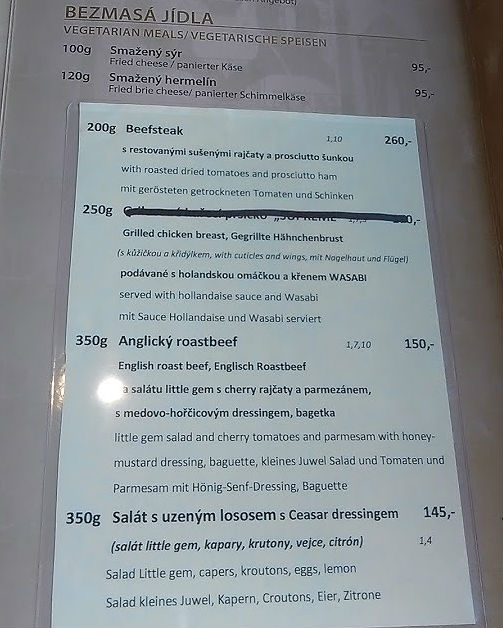 BEZMASÁ JÍDLA
VEGETARIAN MEALS/ VEGETARISCHE SPEISEN
100g Smažený sýr
Fried cheese / panierter Käse 95,-
120g Smažený hermelín
Fried brie cheese/ panierter Schimmelkäse 95,-
200g Beefsteak 1,10 260,-
s restovanými sušenými rajčaty a prosciutto šunkou
with roasted dried tomatoes and prosciutto ham
mit gerösteten getrockneten Tomaten und Schinken
250g
Grilled chicken breast, Gegrillte Hähnchenbrust
(s kůžičkou a křidýlkem, with cuticles and wings, mit Nagelhaut und Flügel)
podávané s holandskou omáčkou a křenem WASABI
served with hollandaise sauce and Wasabi
mit Sauce Hollandaise und Wasabi serviert
350g Anglický roastbeef 1,7,10 150,-
English roast beef, Englisch Roastbeef
a salátu little gem s cherry rajčaty a parmezánem,
s medovo-hořčicovým dressingem, bagetka
little gem salad and cherry tomatoes and parmesam with honey-
mustard dressing, baguette, kleines Juwel Salad und Tomaten und
Parmesam mit Hönig-Senf-Dressing, Baguette
350g Salát s uzeným lososem s Ceasar dressingem 145,-
(salát little gem, kapary, krutony, vejce, citrón) 1,4
Salad Little gem, capers, kroutons, eggs, lemon
Salad kleines Juwel, Kapern, Croutons, Eier, Zitrone